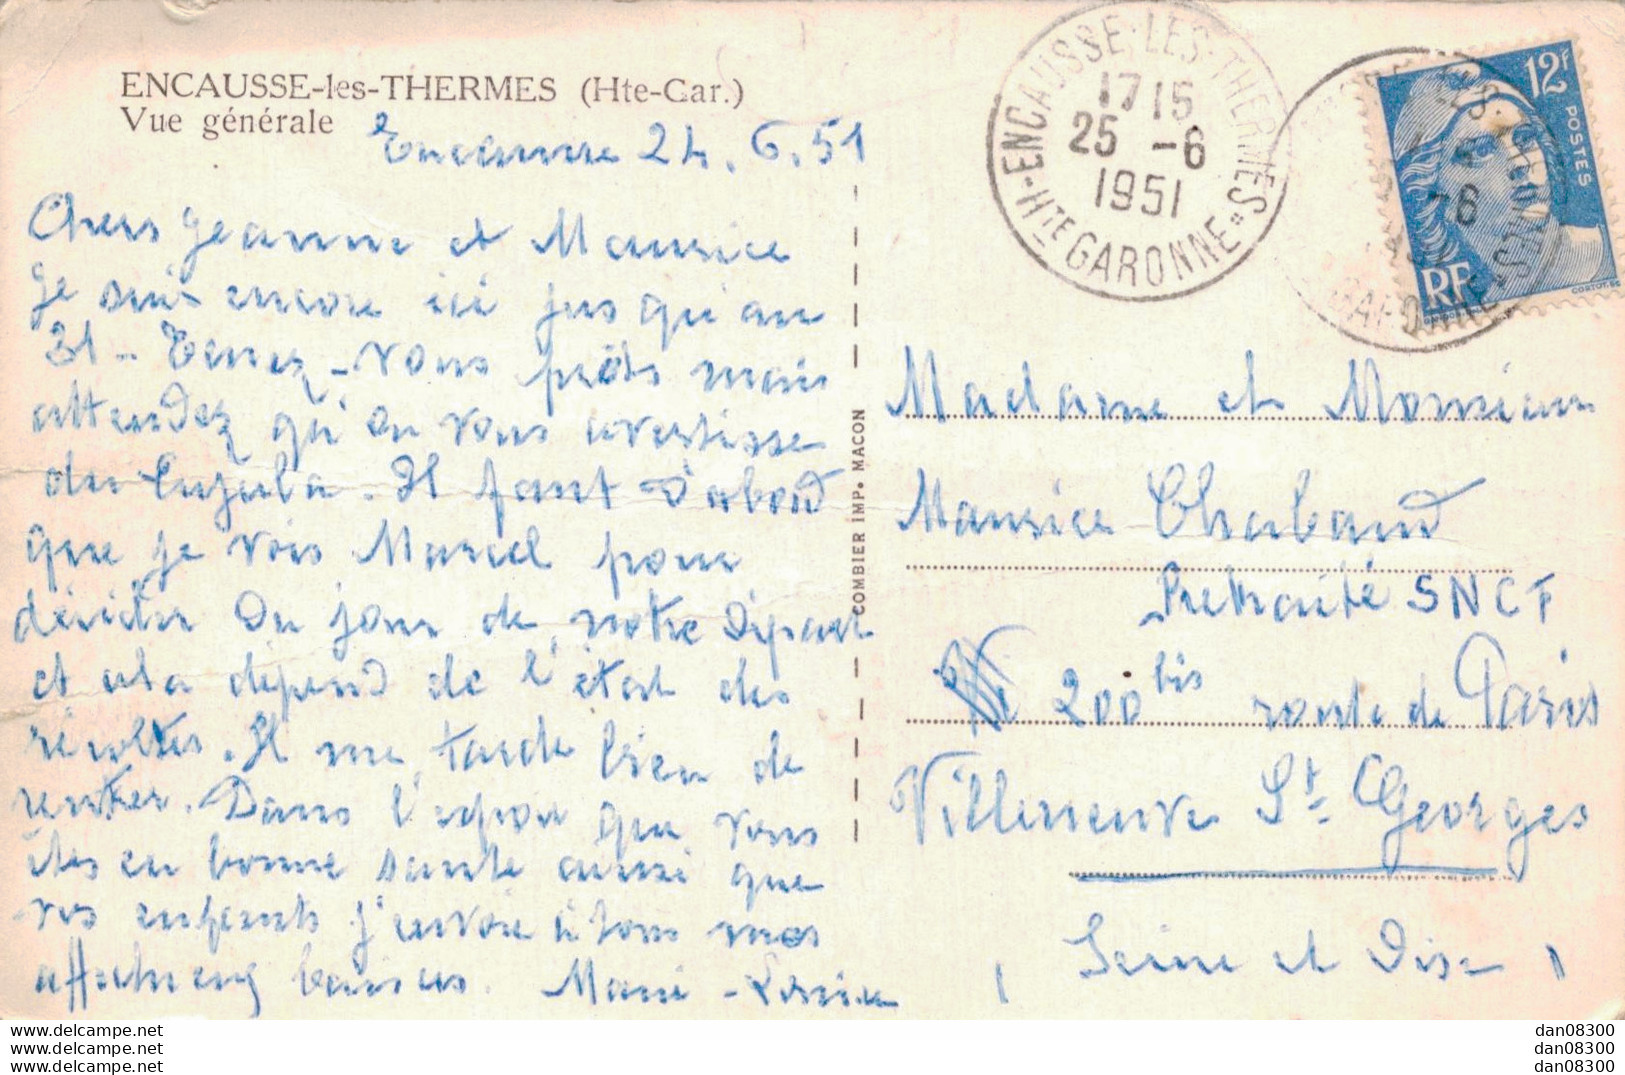 ENCAUSSE-les-THERMES (Hte-Gar.)
Vue générale
Encausse 24. 6. 51
Chers Jeanne et Maurice
Je suis encore ici jusqu'au
31 - Tenez-vous prêts mais
attendez qu'on vous avertisse
de Il faut d'abord
que je vois Marcel pour
décider du jour de notre départ
et cela dépend de l'état des
récoltes. Il me tarde bien de
rentrer. Dans l'espoir que vous
êtes en bonne santé ainsi que
vos enfants j'envoie à tous mes
affectueux baisers. Marie-Louise
COMBIER IMP. MACON
ENCAUSSE-LES-THERMES
1715
25 -6
1951
HTE GARONNE
12F
POSTES
RF
-6
GARONNE
Madame et Monsieur
Maurice Chabaud
Retraité SNCF
200 bis route de Paris
Villeneuve St Georges
(Seine et Oise)
dan08300
dan08300
dan08300
https://www.delcampe.net
https://www.delcampe.net
https://www.delcampe.net